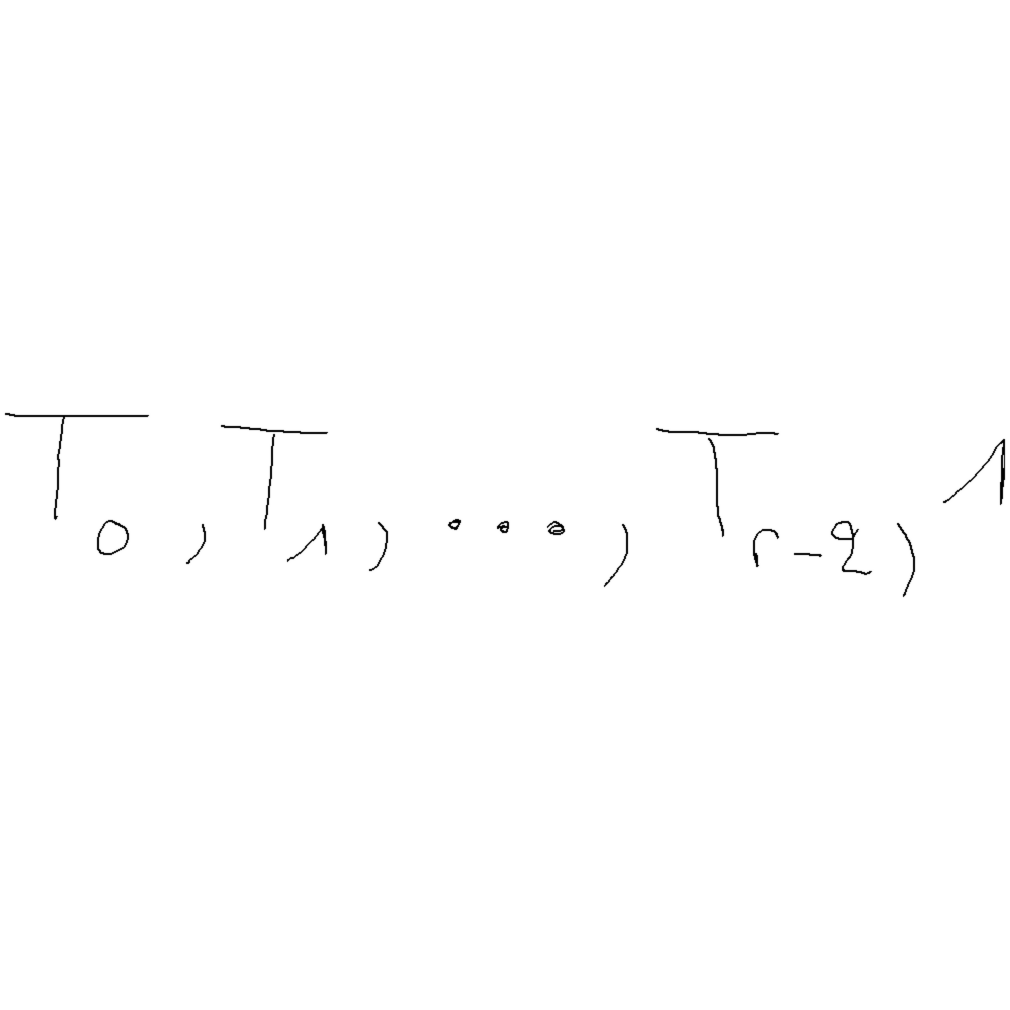 T_0, T_1, ..., T_{r-2}, 1